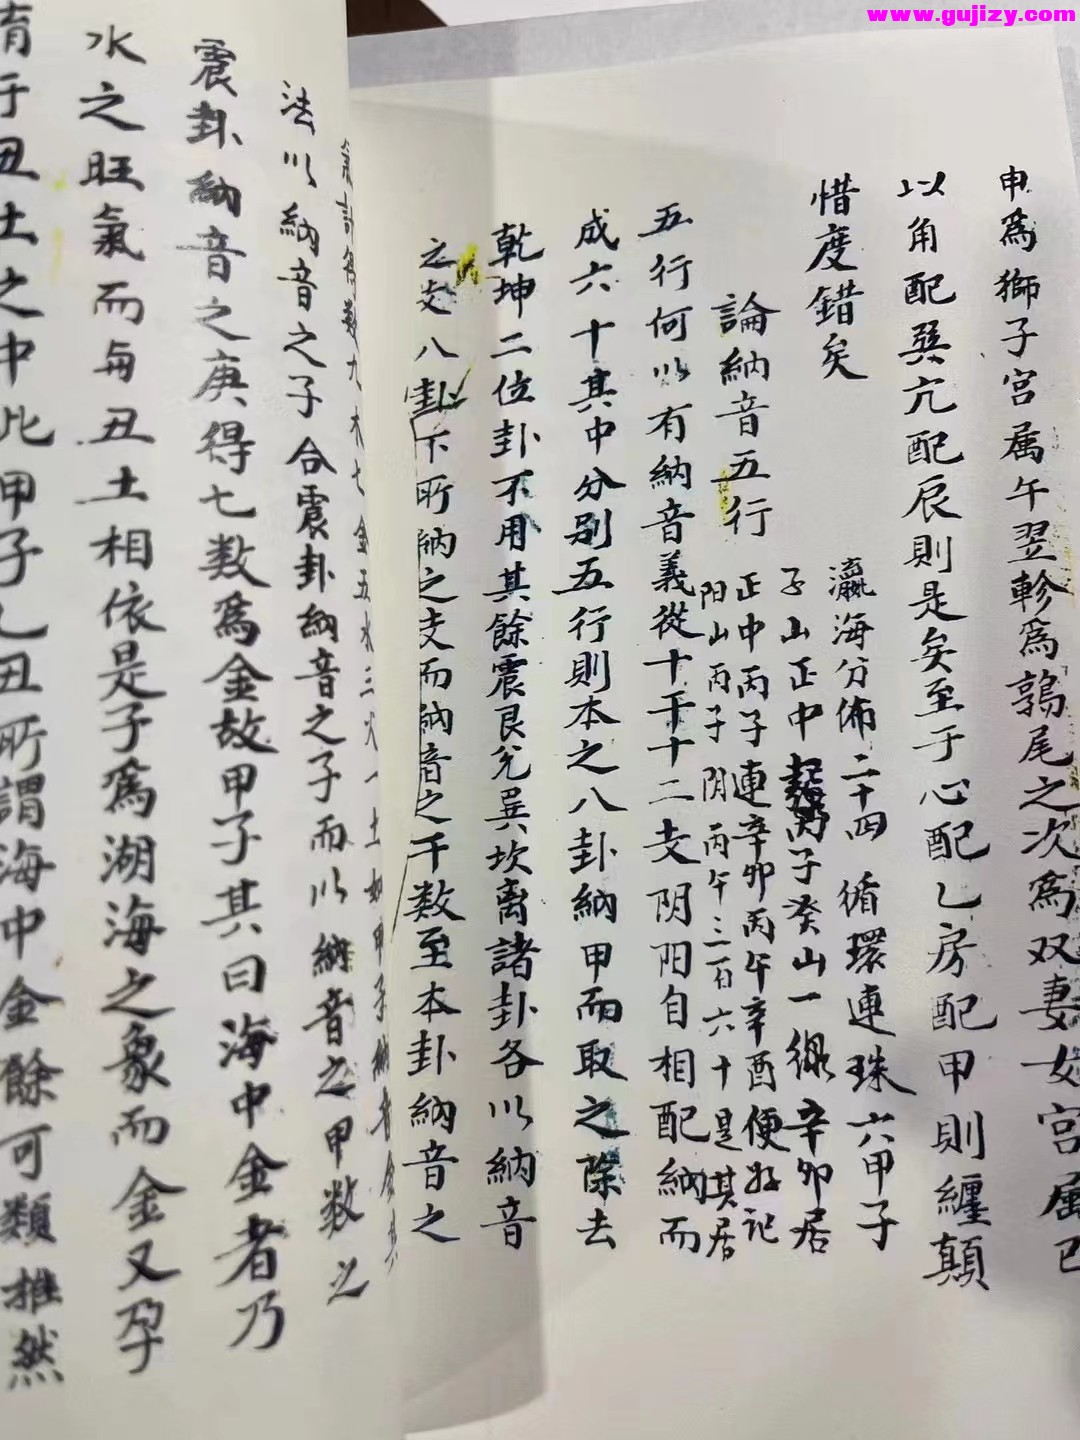 www.gujizy.com
申為獅子宮属午翌軫為鶉尾之次為双妻女宮属巳
以角配巽亢配辰則是矣至于心配乙房配甲則纏顛
惜度錯矣
瀛海分佈二十四 循環連珠六甲子
子山正中 子癸山一線辛卯居
論納音五行
正中丙子連辛卯丙午辛酉便好记
阳山丙子阴丙午三百六十是其居
五行何以有納音義從十干十二支阴阳自相配納而
成六十其中分别五行則本之八卦納甲而取之除去
乾坤二位卦不用其餘震艮兑巽坎离諸卦各以納音
之支八卦下所納之支而納音之干数至本卦納音之
九木七金五水三火一土如甲子納音金其
法以納音之子合震卦納音之子而以納音之甲数之
震卦納音之庚得七数為金故甲子其曰海中金者乃
水之旺氣而与丑土相依是子為湖海之象而金又孕
育于丑土之中此甲子乙丑所謂海中金餘可類推然